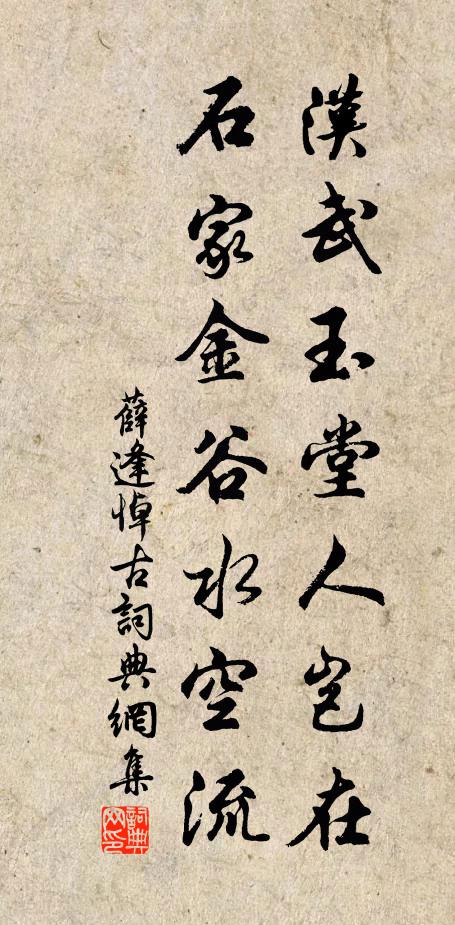 漢武玉堂人豈在
石家金谷水空流
薛逢悼古詞典網集
詞典網印